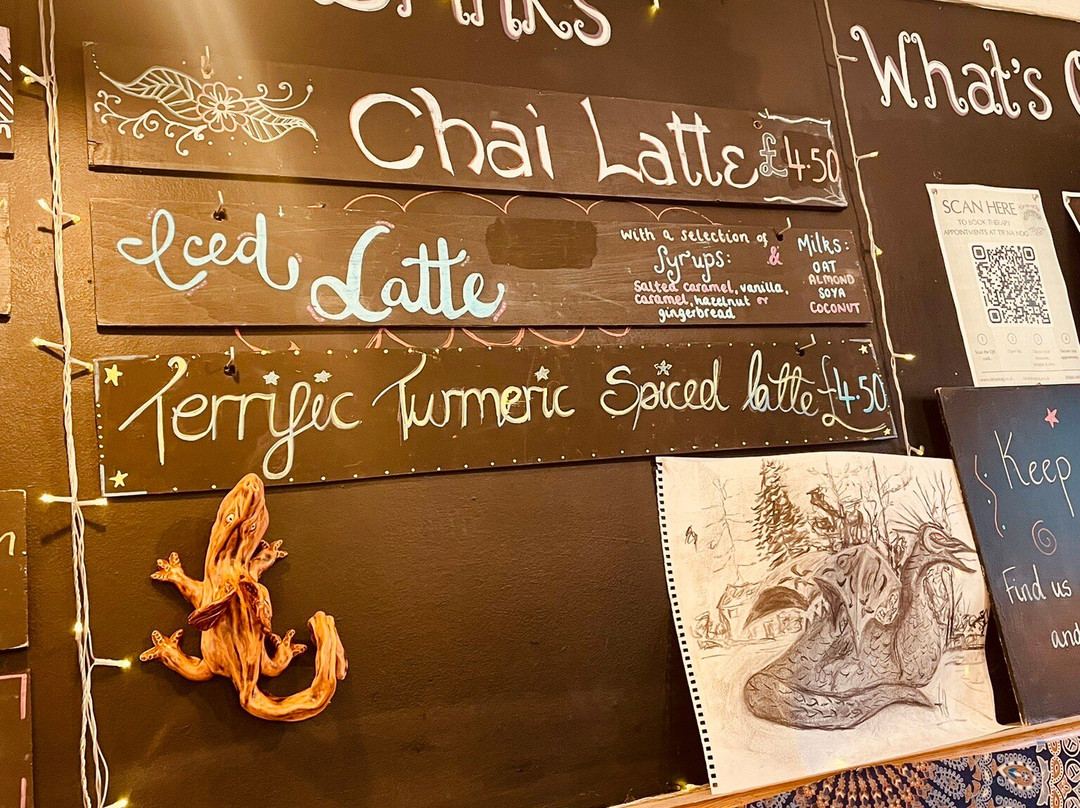 Drinks
Chai Latte £4.50
Iced Latte
with a selection of
Syrups:
Salted caramel, vanilla,
caramel, hazelnut or
gingerbread
&
Milks:
OAT
ALMOND
SOYA
COCONUT
Terrific Turmeric Spiced latte £4.50
What's
SCAN HERE
TO BOOK THERAPY
APPOINTMENTS AT TIR NA NOG
Keep
Find us
and